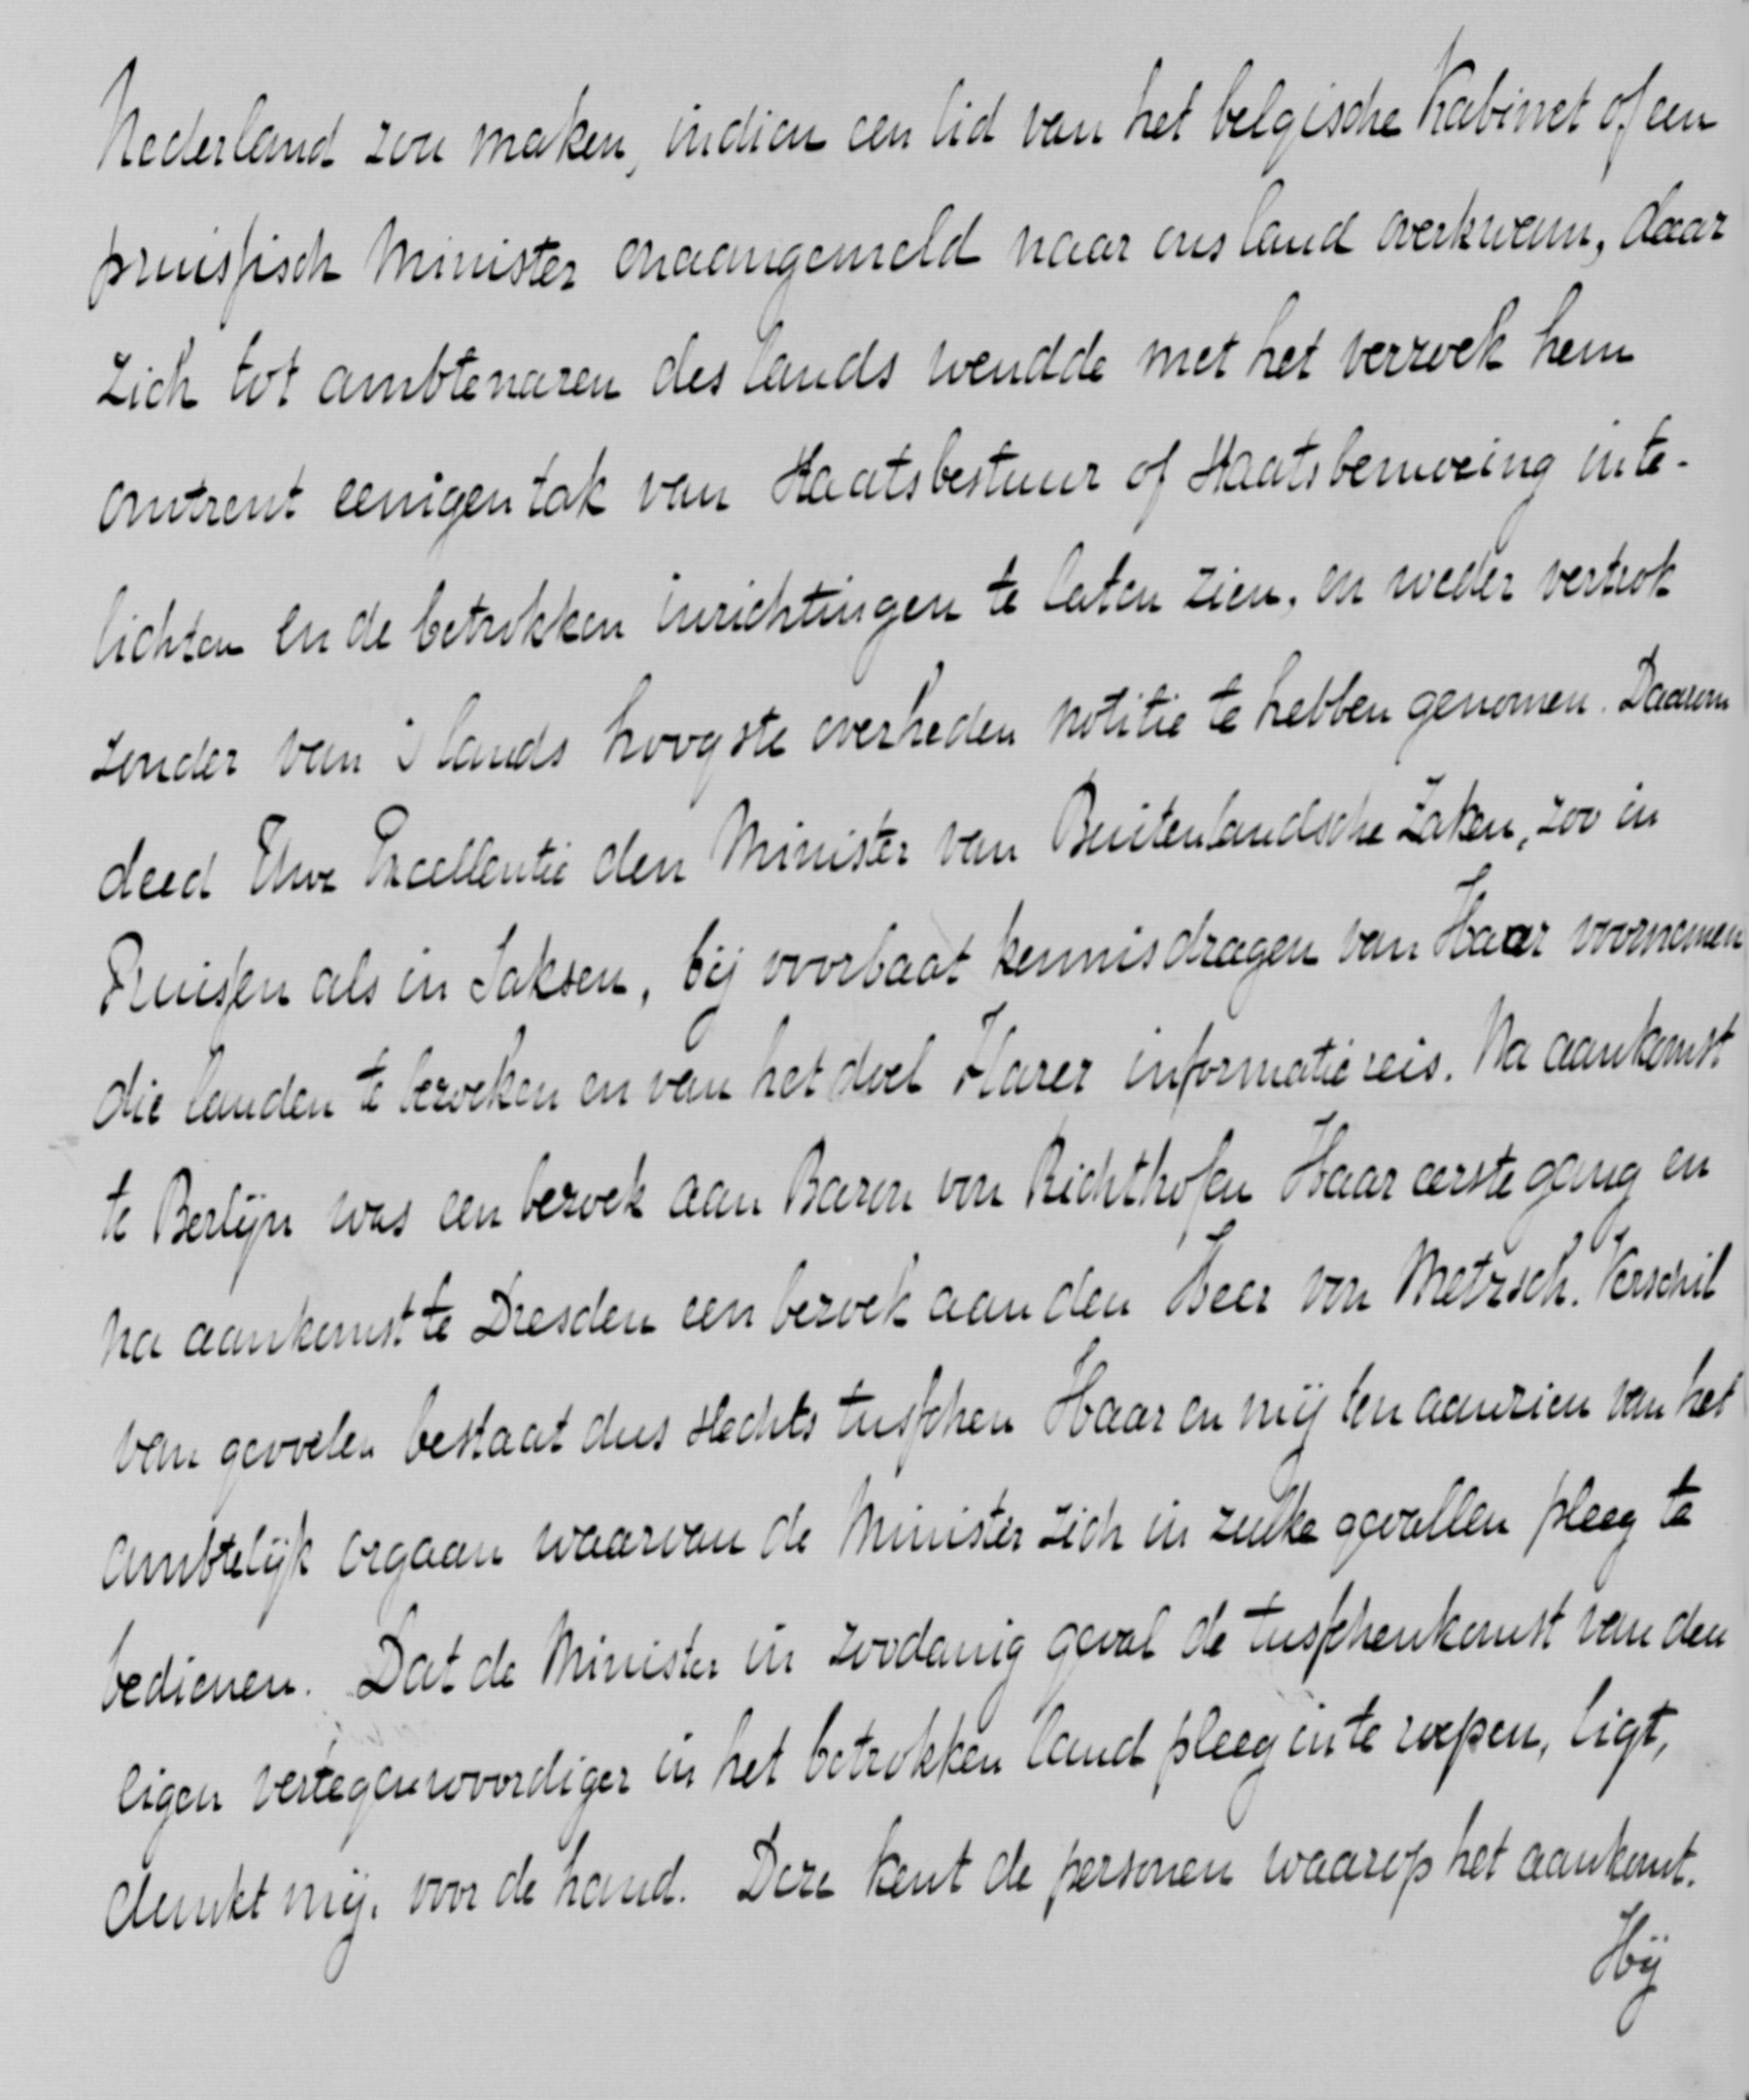 Nederland zou maken, indien een lid van het belgische Kabinet of een
pruissisch Minister onaangemeld naar ons land overkwam, daar
zich tot ambtenaren des lands wendde met het verzoek hem
omtrent eenigen tak van Staatsbestuur of Staatsbemoeiing inte-
lichten en de betrokken inrichtingen te laten zien, en weder vertrok
zonder van 's lands hoogste overheden notitie te hebben genomen. Daarom
deed Uwe Excellentie den Minister van Buitenlandsche Zaken, zoo in
Pruissen als in Saksen, bij voorbaat kennis dragen van Haar voornemen
die landen te bezoeken en van het doel Harer informatiereis. Na aankomst
te Berlijn was een bezoek aan Baron von Richthofen Haar eerste gang en
na aankomst te Dresden een bezoek aan den Heer von Metzsch. Verschil
van gevoelen bestaat dus slechts tusschen Haar en mij ten aanzien van het
ambtelijk orgaan waarvan de Minister zich in zulke gevallen pleeg te
bedienen. Dat de Minister in zoodanig geval de tusschenkomst van den
eigen vertegenwoordiger in het betrokken land pleeg inte roepen, ligt,
dunkt mij, voor de hand. Deze kent de personen waarop het aankomt.
Hij